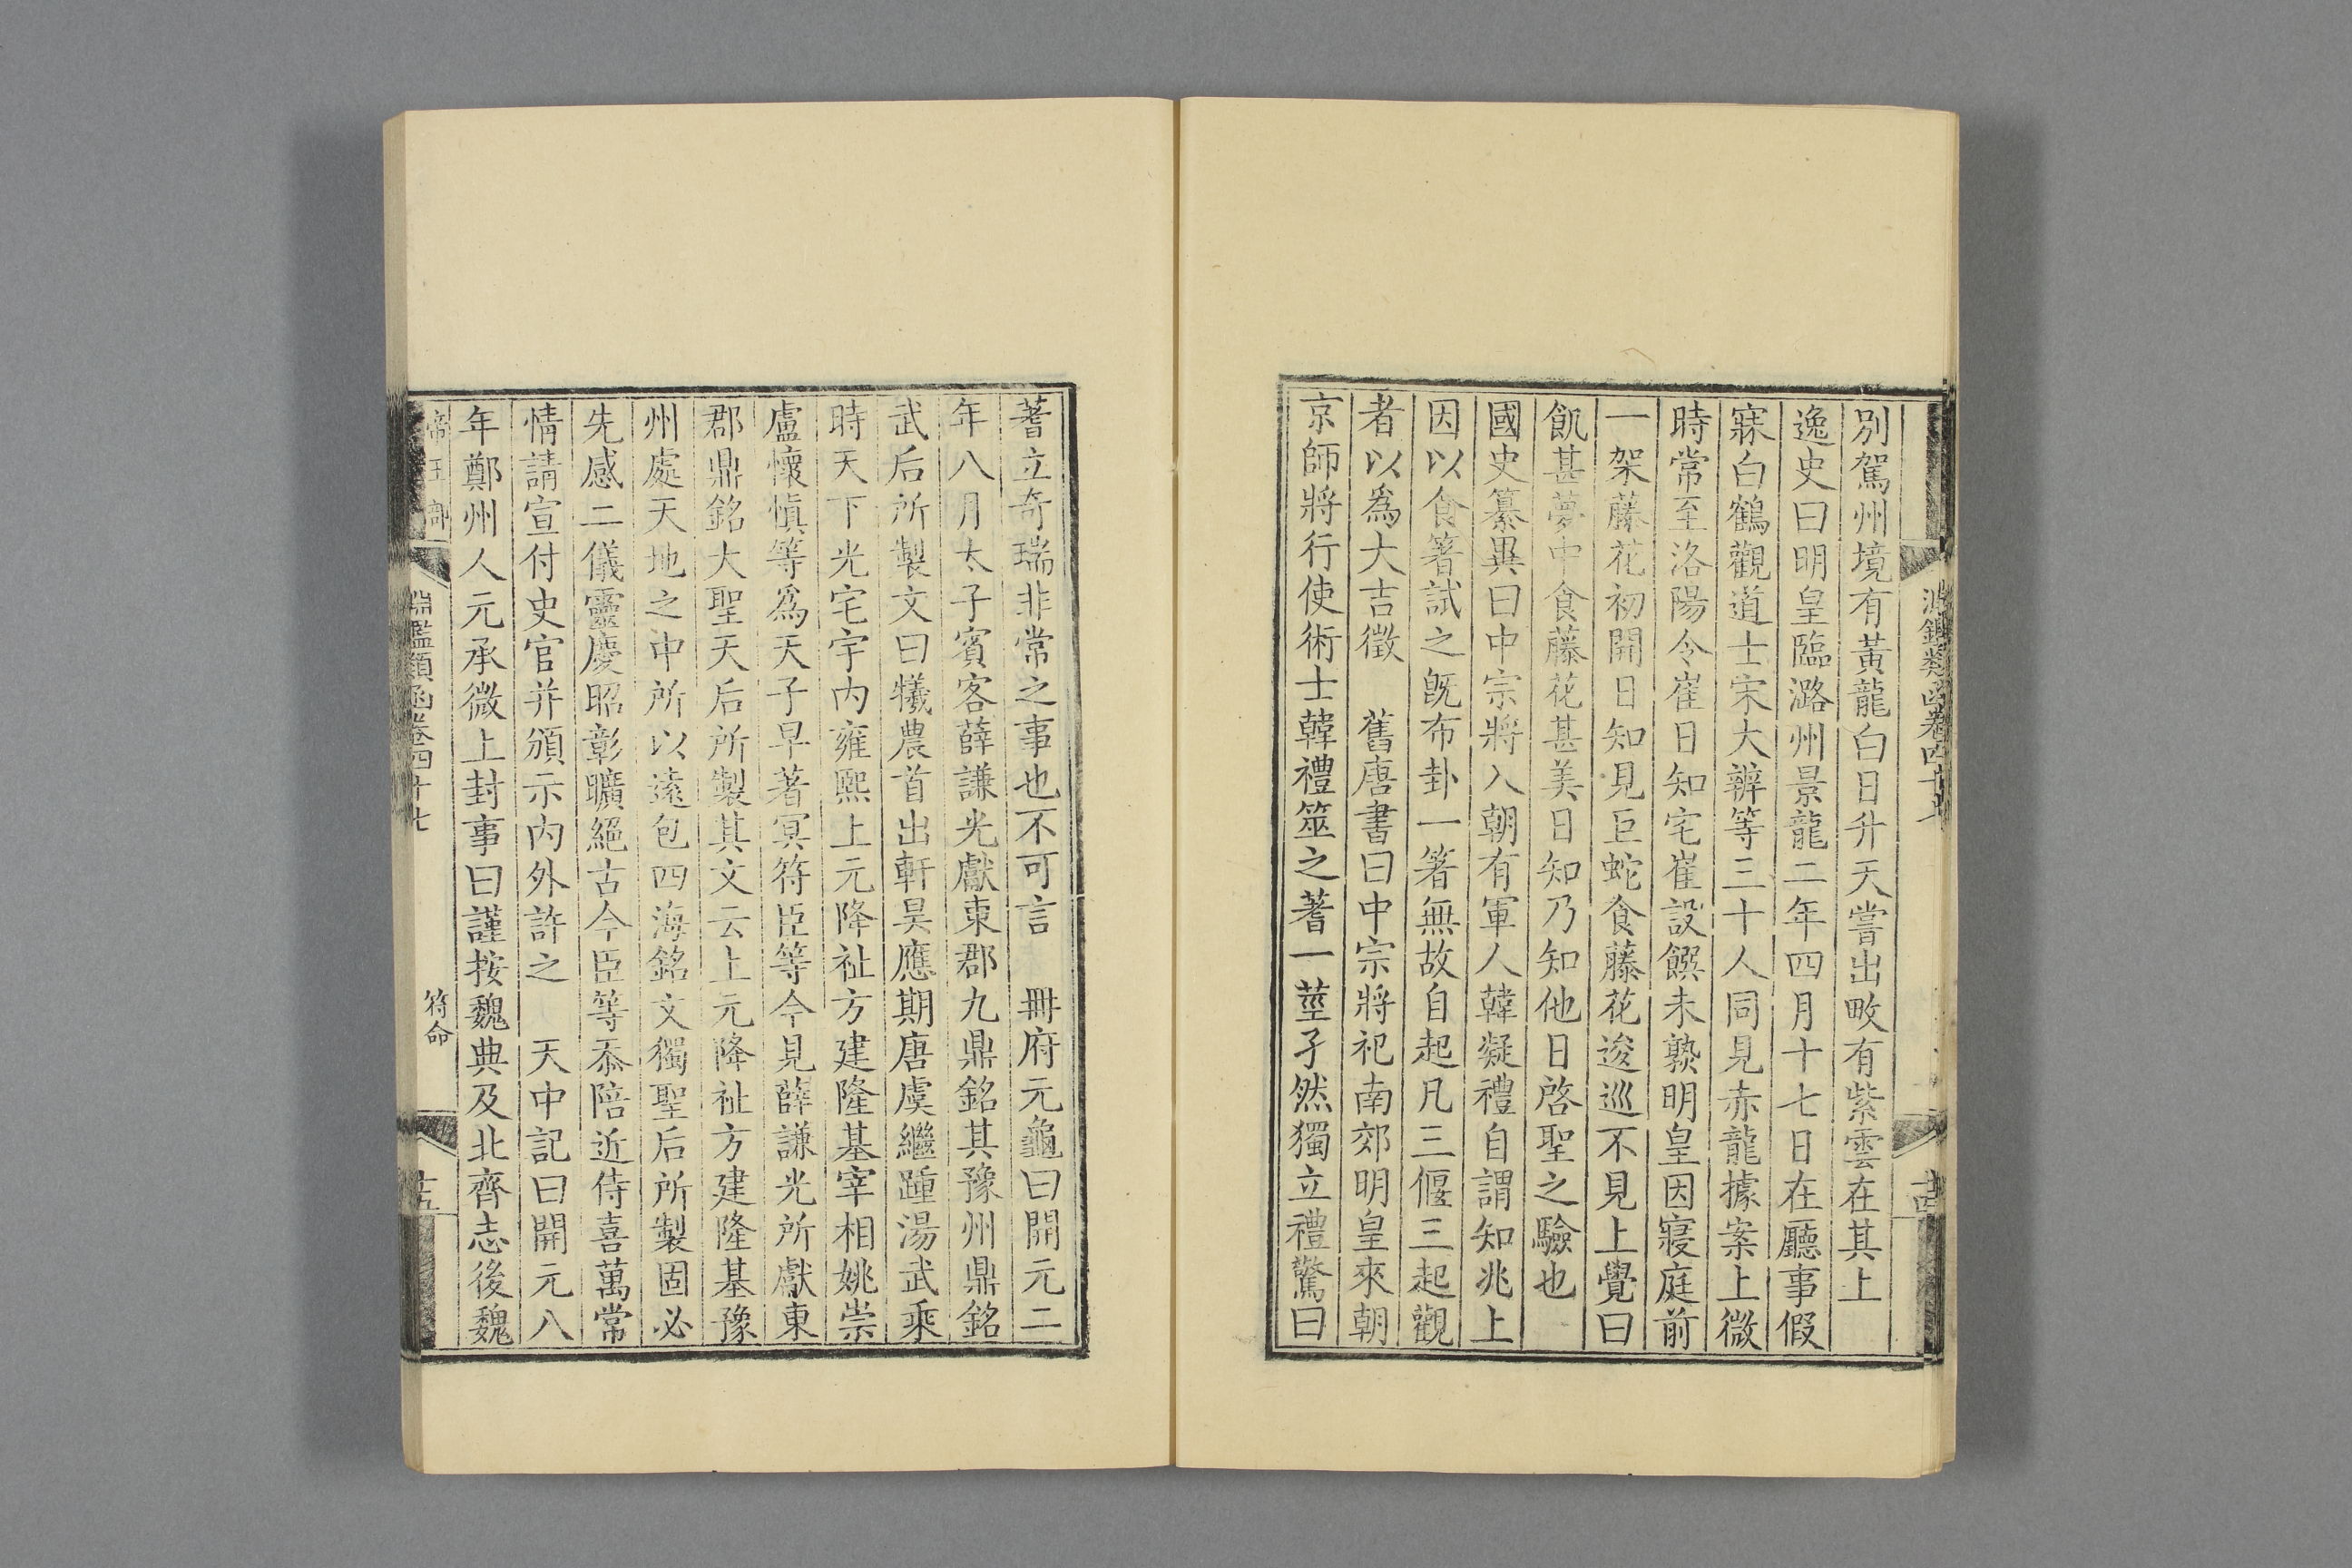 淵鑑類函卷四十七
十四
別駕州境有黃龍白日升天嘗出畋有紫雲在其上
逸史曰明皇臨潞州景龍二年四月十七日在廳事假
寐白鶴觀道士宋大辨等三十人同見赤龍據案上微
時常至洛陽令崔日知宅崔設饌未熟明皇因寢庭前
一架藤花初開日知見巨蛇食藤花逡巡不見上覺曰
飢甚夢中食藤花甚美日知乃知他日啓聖之驗也
國史纂異曰中宗將入朝有軍人韓凝禮自謂知兆上
因以食箸試之旣布卦一箸無故自起凡三偃三起觀
者以爲大吉徵　舊唐書曰中宗將祀南郊明皇來朝
京師將行使術士韓禮筮之蓍一莖孑然獨立禮驚曰
蓍立奇瑞非常之事也不可言　冊府元龜曰開元二
年八月太子賓客薛謙光獻東郡九鼎銘其豫州鼎銘
武后所製文曰犧農首出軒昊應期唐虞繼踵湯武乘
時天下光宅宇內雍熙上元降祉方建隆基宰相姚崇
盧懷愼等爲天子早著冥符臣等今見薛謙光所獻東
郡鼎銘大聖天后所製其文云上元降祉方建隆基豫
州處天地之中所以遠包四海銘文獨聖后所製固必
先感二儀靈慶昭彰曠絕古今臣等忝陪近侍喜萬常
情請宣付史官并頒示內外許之　天中記曰開元八
年鄭州人元承微上封事曰謹按魏典及北齊志後魏
帝王部
淵鑑類函卷四十七
符命
十五